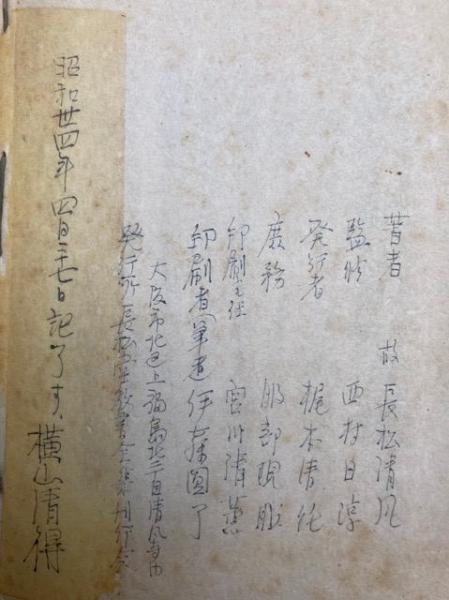 著者 故 長松清風
監修 西村日淳
発行者 梶本清純
庶務 服部現
印刷主任 宮川清薫
印刷者(筆道 伊藤圓了
大阪市北区上福島北二丁目清風寺内
発行所 長松
昭和卅四年四月二十七日記了す、横山清得